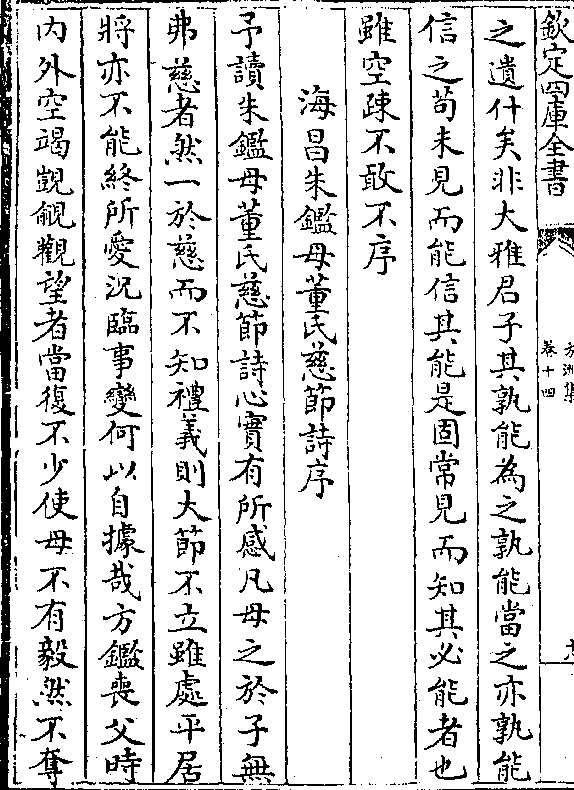 欽定四庫全書
方洲集
卷十四
之遺什矣非大雅君子其孰能為之孰能當之亦孰能
信之茍未見而能信其能是固常見而知其必能者也
雖空疎不敢不序
海昌朱鑑母董氏慈節詩序
予讀朱鑑母董氏慈節詩心實有所感凡母之於子無
弗慈者然一於慈而不知禮義則大節不立雖處平居
將亦不能終所愛況臨事變何以自據哉方鑑喪父時
内外空竭覬覦觀望者當復不少使母不有毅然不奪